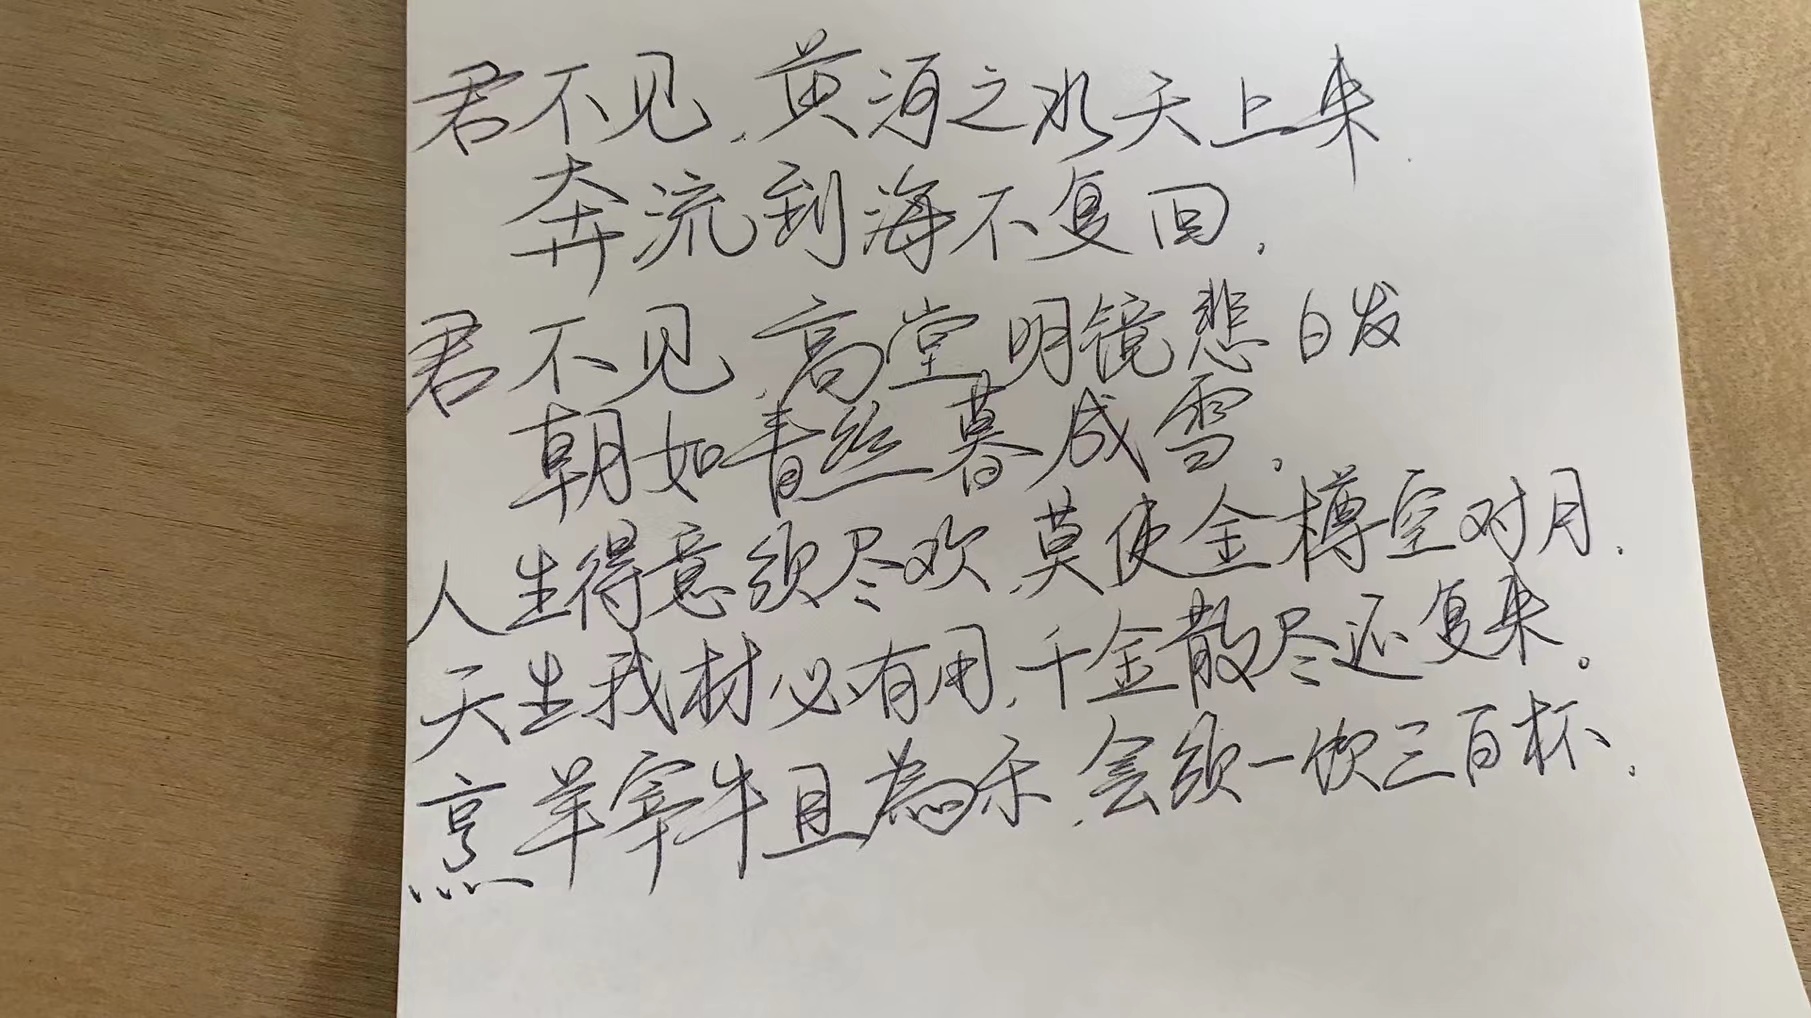 君不见,黄河之水天上来.
奔流到海不复回,
君不见,高堂明镜悲白发
朝如青丝暮成雪.
人生得意须尽欢,莫使金樽空对月.
天生我材必有用,千金散尽还复来。
烹羊宰牛且为乐,会须一饮三百杯.